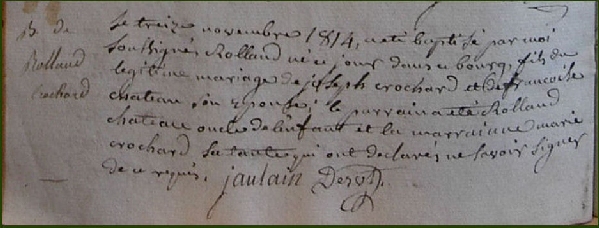 B. de
Rolland
Crochard
Le treize novembre 1814, a eté baptisé par moi
Soussigné, Rolland né ce jour dans ce bourg, fils du
légitime mariage de joseph crochard et de francoise
chateau son epouse; le parrain a eté Rolland
chateau oncle de l'enfant et la marrainne marie
crochard sa tante qui ont declarés ne savoir signer
de ce requis. jaulain